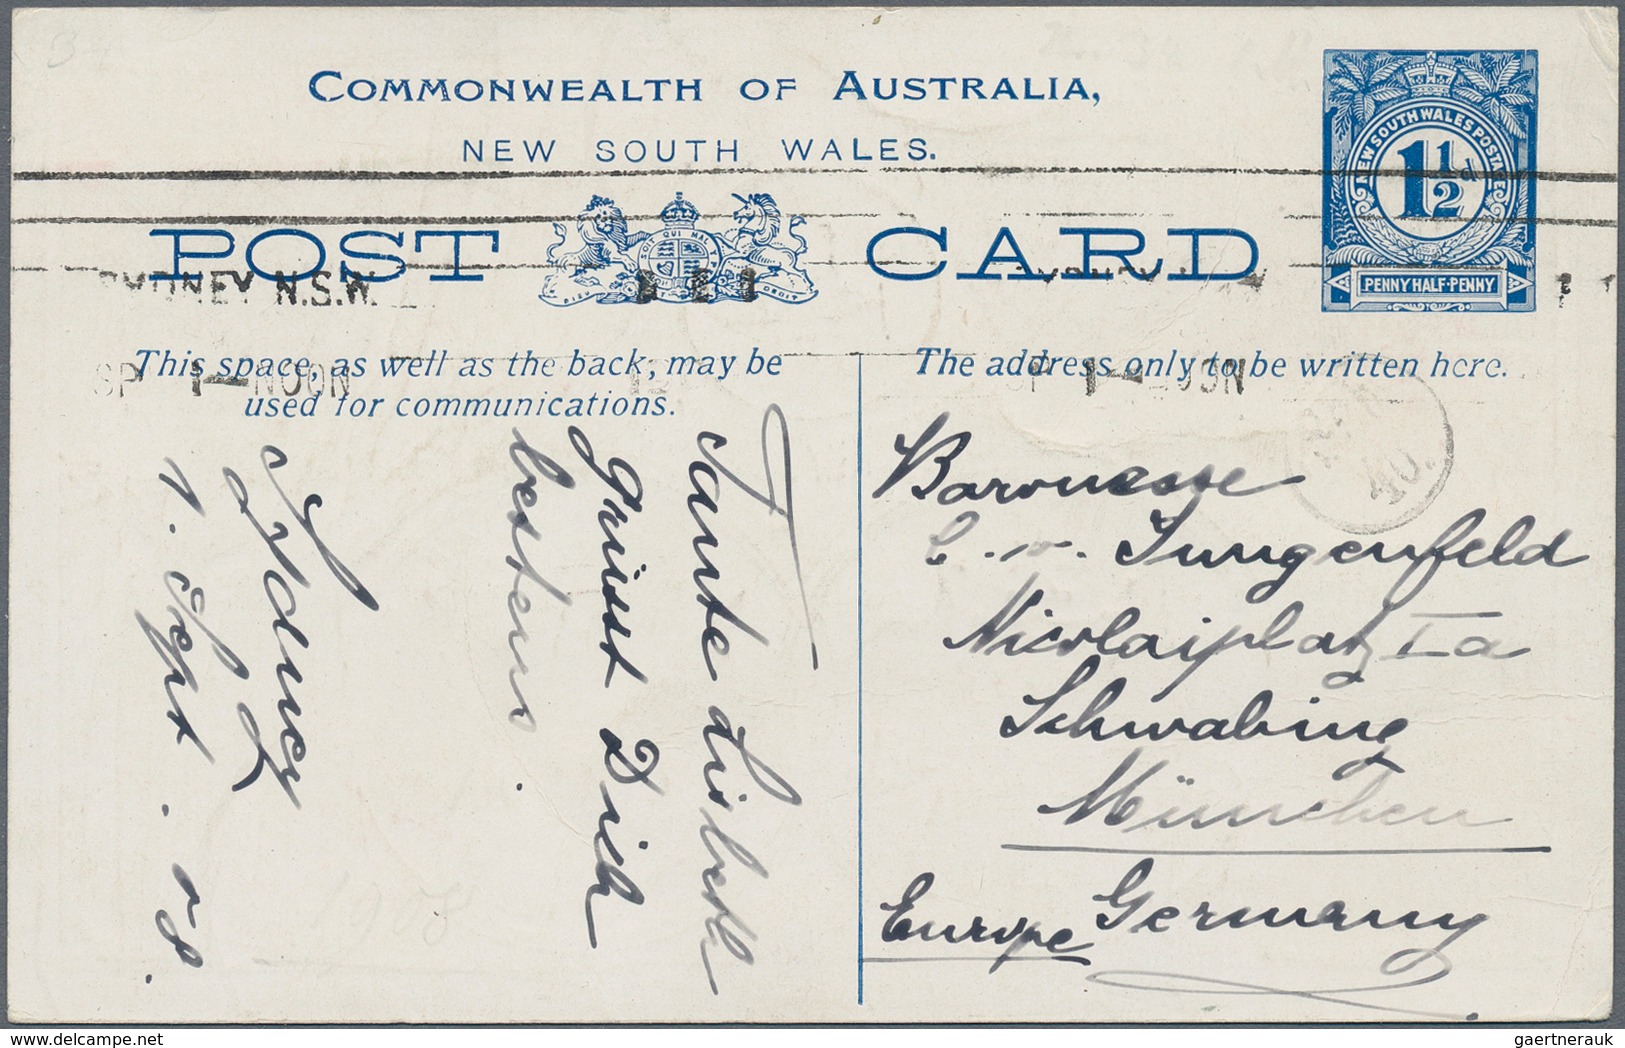 COMMONWEALTH OF AUSTRALIA,
NEW SOUTH WALES.
POST CARD
NEW SOUTH WALES POSTAGE
1½d
PENNY HALF-PENNY
SOIT QUI MAL
DIEU ET DROIT
SYDNEY N.S.W.
SP 1 NOON
This space, as well as the back, may be
used for communications.
The address only to be written here.
Tante Lisbeth
grüsst Dich
bestens.
Sydney
1. Sept. 08.
Baronesse
v. Jungenfeld
Nicolaiplatz Ia
Schwabing
München
Germany
Europe
40.
1908
gaertnerauk